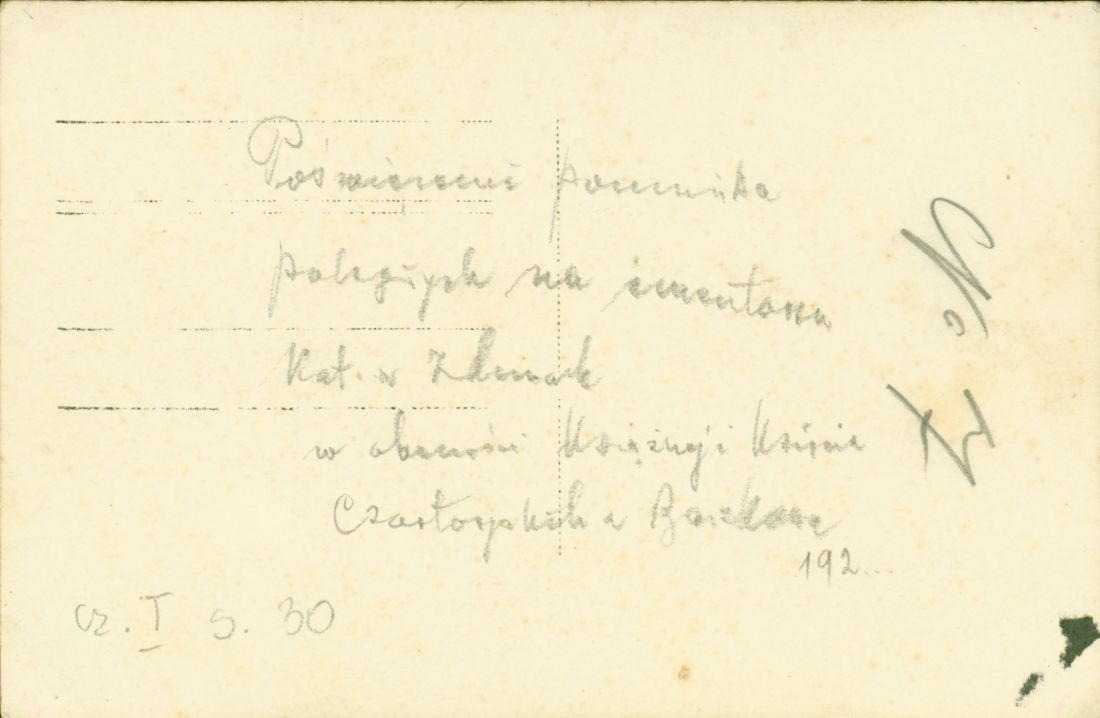 Poświęcenie pomnika
poległych na cmentarzu
Kat. w Zdunach
w obecności Księżnej i Księcia
Czartoryskich z
192...
cz. I s. 30